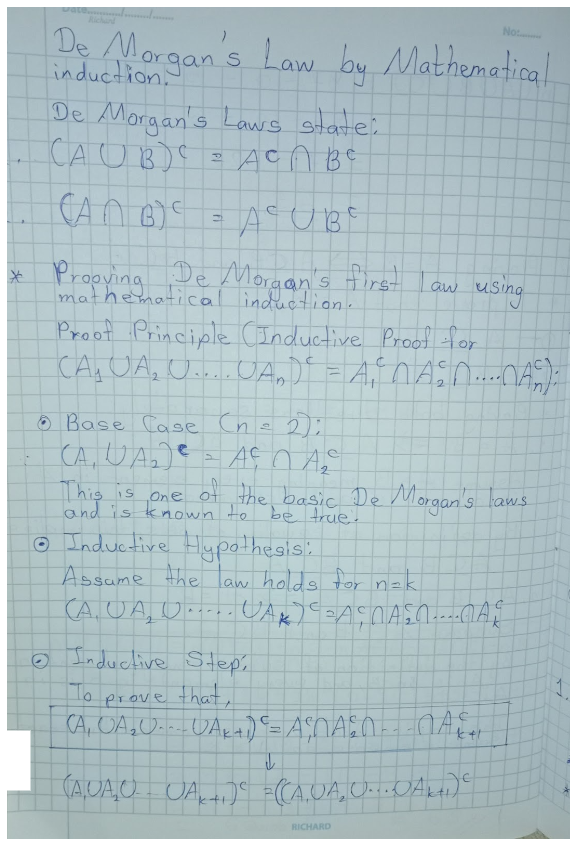 Date.........../........./.........
Richard
No:......
De Morgan's Law by Mathematical
induction.
De Morgan's Laws state:
(A ∪ B)ᶜ = Aᶜ ∩ Bᶜ
(A ∩ B)ᶜ = Aᶜ ∪ Bᶜ
* Prooving De Morgan's first law using
mathematical induction.
Proof Principle (Inductive Proof for
(A₁ ∪ A₂ ∪ .... ∪ Aₙ)ᶜ = A₁ᶜ ∩ A₂ᶜ ∩ .... ∩ Aₙᶜ):
⊙ Base Case (n = 2):
(A₁ ∪ A₂)ᶜ = A₁ᶜ ∩ A₂ᶜ
This is one of the basic De Morgan's laws
and is known to be true.
⊙ Inductive Hypothesis:
Assume the law holds for n=k
(A₁ ∪ A₂ ∪ ...... ∪ Aₖ)ᶜ = A₁ᶜ ∩ A₂ᶜ ∩ .... ∩ Aₖᶜ
⊙ Inductive Step:
To prove that,
(A₁ ∪ A₂ ∪ .... ∪ Aₖ₊₁)ᶜ = A₁ᶜ ∩ A₂ᶜ ∩ ... ∩ Aₖ₊₁ᶜ
↓
(A₁ ∪ A₂ ∪ ... ∪ Aₖ₊₁)ᶜ = ((A₁ ∪ A₂ ∪ ... ∪ Aₖ₊₁)ᶜ
1.
*
RICHARD